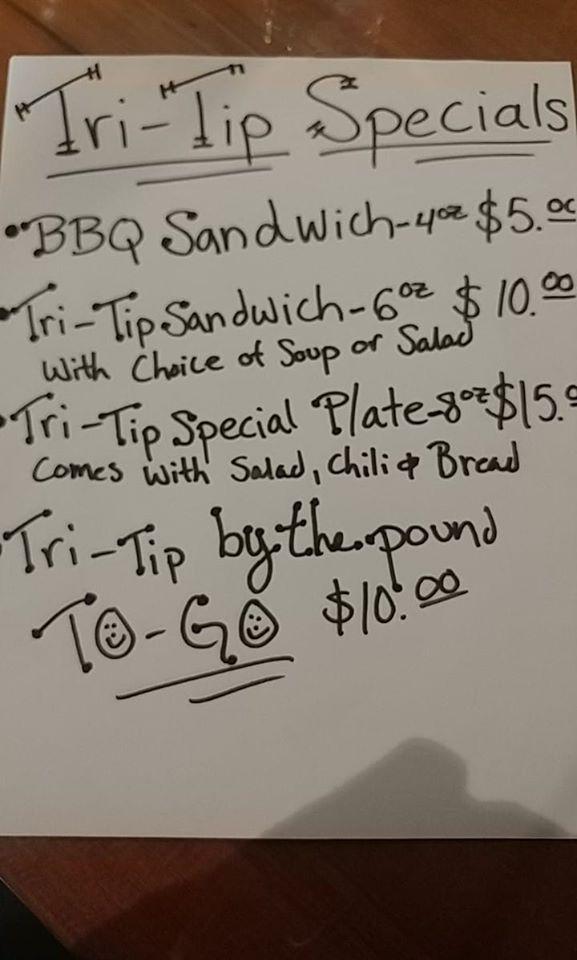 Tri-Tip Specials
• BBQ Sandwich-4oz $5.00
• Tri-Tip Sandwich-6oz $10.00
With Choice of Soup or Salad
• Tri-Tip Special Plate-8oz $15.0
Comes With Salad, Chili & Bread
• Tri-Tip by.the.pound
TO-GO $10.00